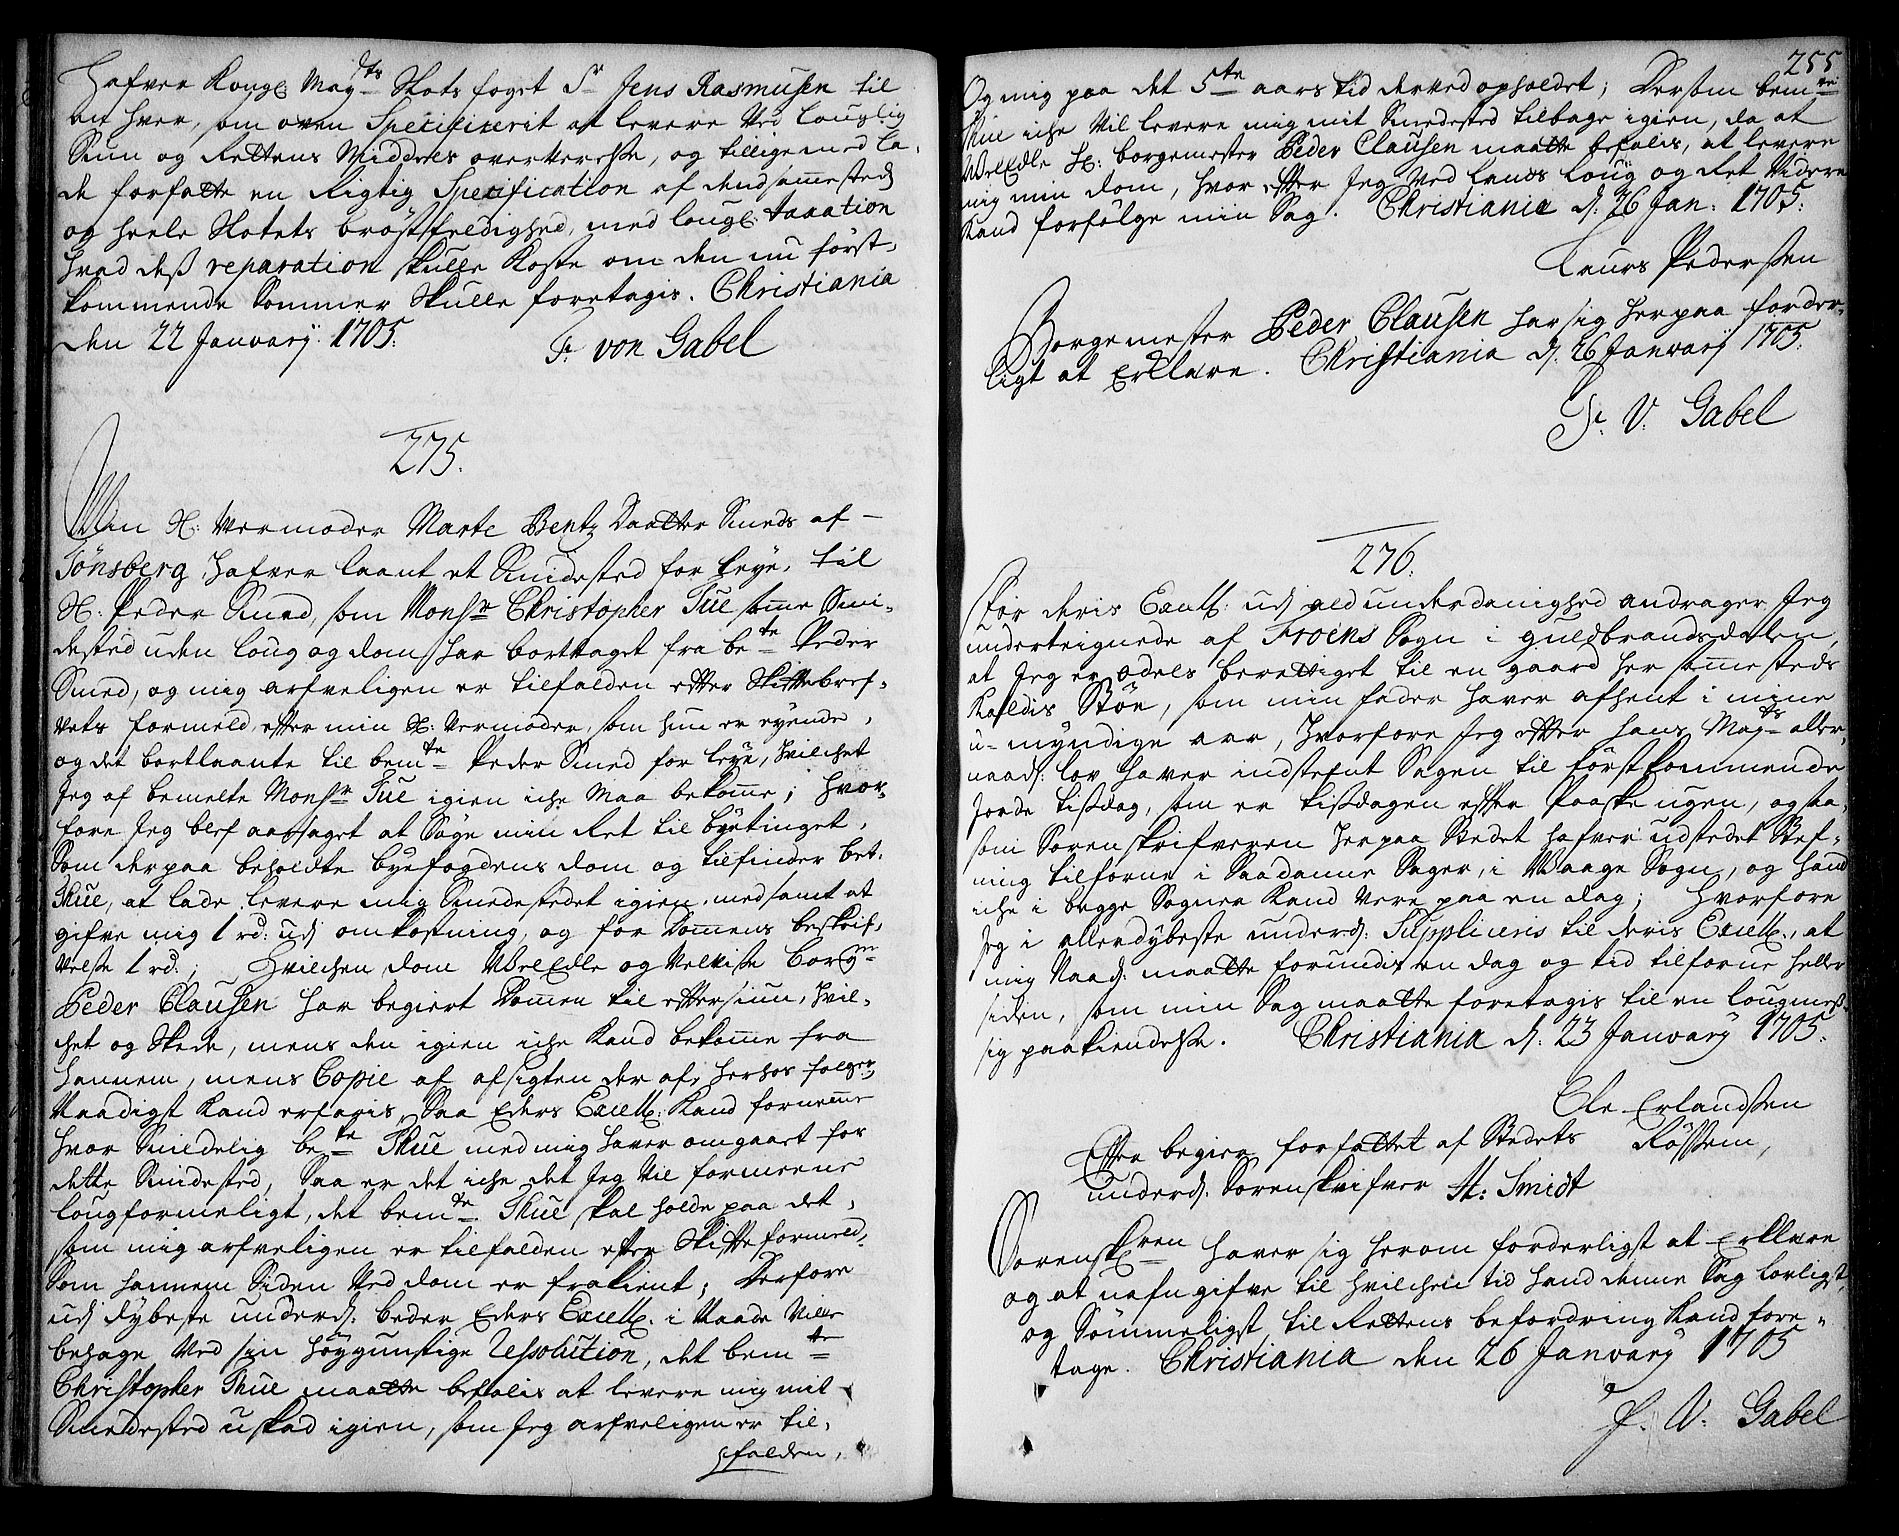 Hafver Kongl: May:ts Slots foget Sr Jens Rasmusen til
en hver, som oven Specificerit at levere Ved Louglig
Siun og Rettens Middels oververelse, og tillige med La-
de forfatte en Rigtig Specification af dend sammesteds
og heele Slotets bröstfeldighed, med lougl: taxation
hvad dess reparation skulle koste om den nu först-
kommende Sommer skulle foretagis. Christiania
den 22 Januarij 1705.
Fr von Gabel
275.
Min Sl: Vermoder Marte Bentz Daatter Smeds af
Tönsberg hafver laant et Smidested for leye, til
Sl: Peder Smed, som Monsr Christopher Tue samme Smi-
dested uden loug og dom har borttaget fra bete Peder
Smed, og mig arfveligen er tilfalden efter Skiftebref-
vets formeld, efter min Sl: Vermoder, som hun er eyende,
og det bortlaante til bemte Peder Smed for leye, hvilchet
Jeg af bemelte Monsr Tue igien iche maa bekomme; hvor-
fore Jeg blef aarsaget at Söge min Ret til byetinget,
Som derpaa beholdte byefogdens dom og tilfinder bete
Thue, at lade levere mig Smedestedet igien, med samt at
gifve mig 1 rd: udj omkostning, og for Domens beskrif-
velse 1 rd:; Hvilchen dom WelEdle og Velvise Borgm:
Peder Clausen har begiert Domen til eftersiun, hvil-
chet og Skede, mens den igien iche Kand bekomme fra
hannem, mens Copie af afsigten der af, herhos følger,
Naadigst Kand erfaris, Saa Eders Excell: Kand fornemme
hvor Smidelig bete Thue med mig haver omgaaet for
dette Smidested, Saa er det iche det Jeg Vil formeene
lougformeligt, det bemte Thue skal holde paa det,
som mig arfveligen er tilfalden efter Skifte formeld,
Som hannem Siden Ved dom er frakient; Derfore
udj dybeste underd: beder Eders Excell: i Naade Ville
behage Ved sin höygunstige Ressolution, det bemte
Christopher Thue maatte befalis at levere mig mit
Smedested uskad igien, som Jeg arfveligen er til-
falden,
255
Og mig paa det 5te aars tid der ved opholdet; Dersom bemte
Thue iche Vil levere mig mit Smedested tilbage igien, da at
WelEdle Hr: borgemester Peder Clausen maatte befalis, at levere
mig min dom, hvor efter Jeg Ved Lands Loug og Ret Videre
Kand forfölge min Sag. Christiania d: 26 Jan: 1705.
Laurs Pedersen
Borgemester Peder Clausen har sig herpaa forder-
ligt at Erklære. Christiania d: 26 Januarij 1705.
Fr. V. Gabel
276.
For deris Excell: udj ald underdanighed andrager Jeg
underteignede af Froens Sogn i Guldbrandsdalen,
at Jeg er odels berettiget til en gaard her sammesteds
Kaldis Stöe, som min fader haver afhent i mine
u-myndige aar, Hvorfore Jeg efter hans May:ts aller-
naad: lov haver indstefnt Sagen til förstkommende
Jorde tissdag, som er tissdagen efter Paaske ugen, og saa-
som Sorenskrifveren her paa Stedet hafver udstedet Stef-
ning tilforne i Saadanne Sager, i Waage Sogn, og hand
iche i begge Sogner Kand Vere paa en dag; Hvorfore
Jeg i allerdybeste underd: Suppliceris til deris Excell:, at
mig Naad: maatte forundis en dag og tid tilforne heller
siden, som min Sag maatte foretagis til en lougmes-
sig paakiendelse. Christiania d: 23 Januarij 1705.
Ole Erlandsen
Efter begier forfattet af Stedets Rössem,
underd: Sorenskrifver St: Smidt
Sorenskr:ren haver sig herom forderligst at Erklære
og at nafngifve til hvilchen tid hand denne Sag lovligst,
og Sömmeligst til Rettens befordring Kand fore-
tage. Christiania den 26 Januarij 1705
F. V. Gabel